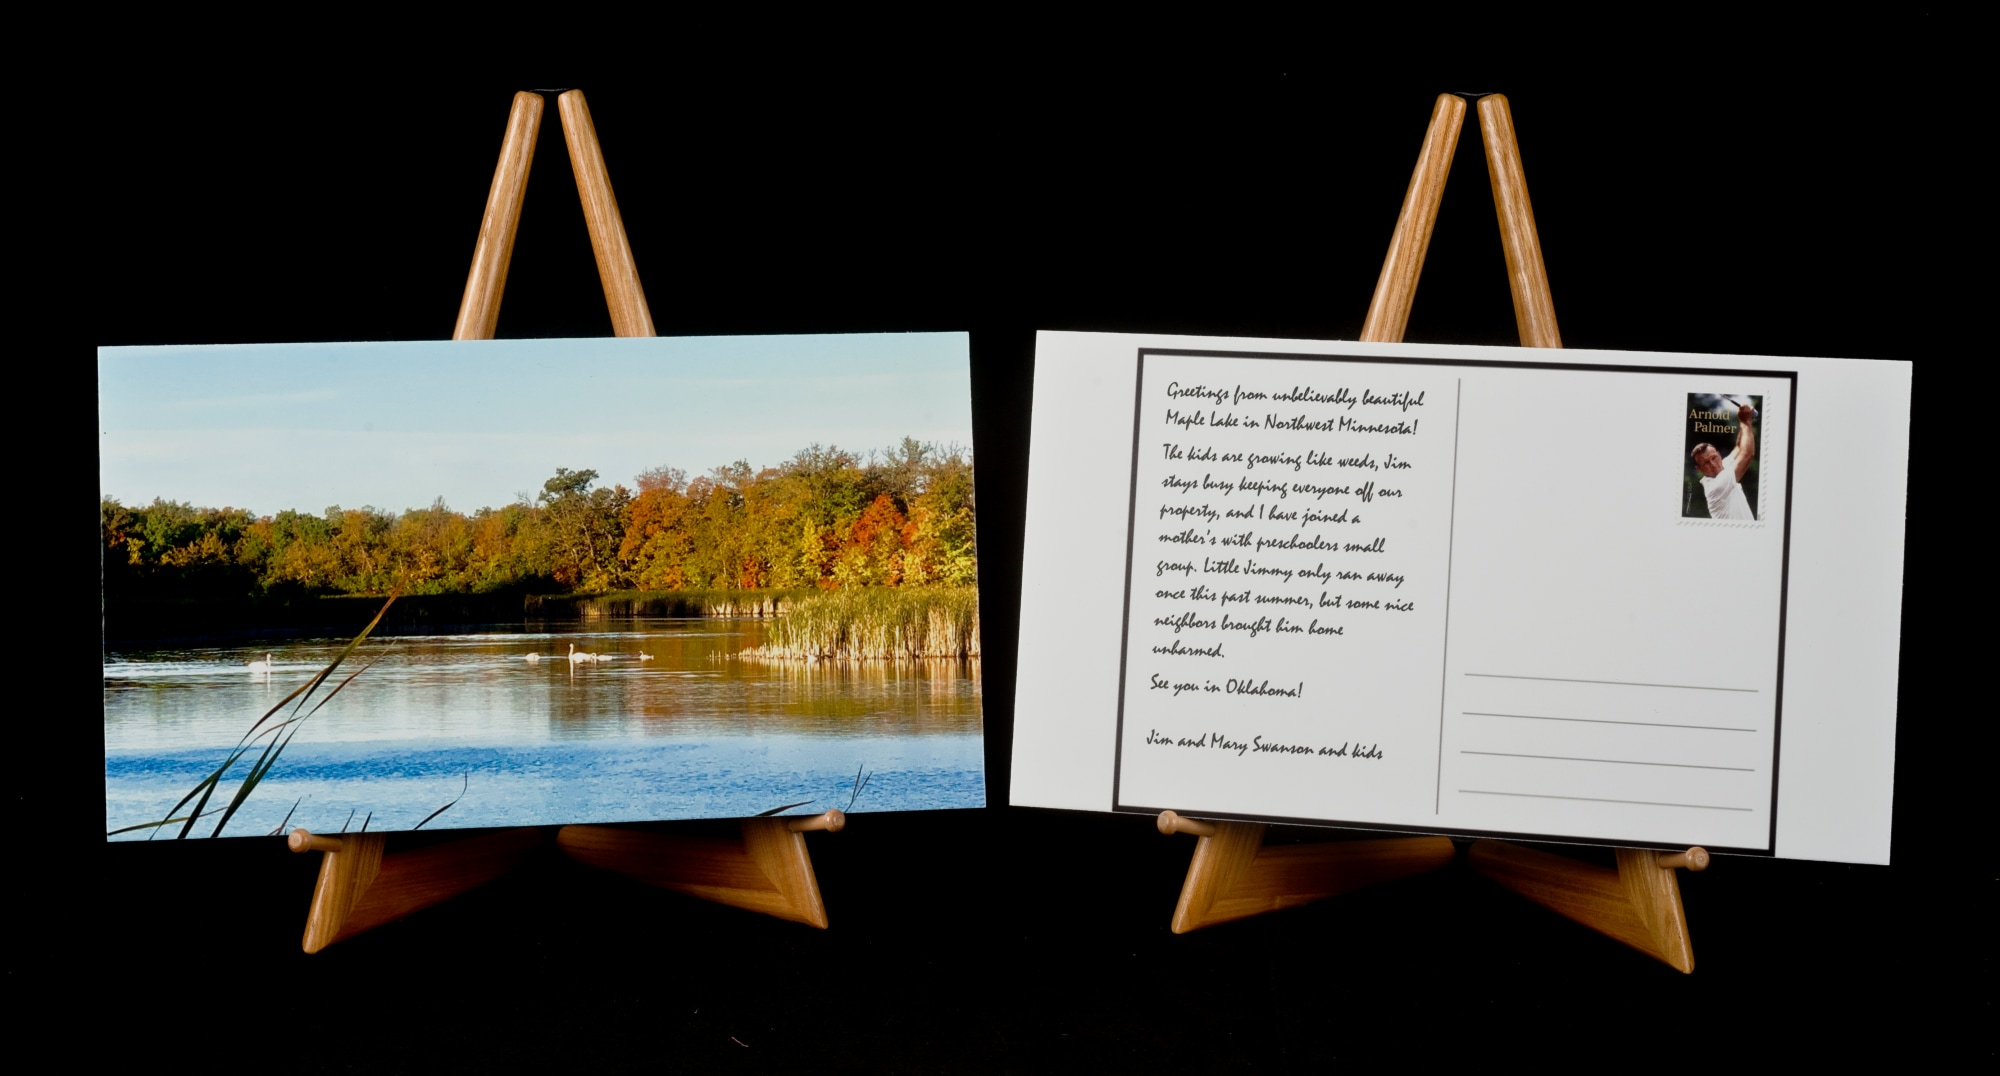 Greetings from unbelievably beautiful
Maple Lake in Northwest Minnesota!
The kids are growing like weeds, Jim
stays busy keeping everyone off our
property, and I have joined a
mother's with preschoolers small
group. Little Jimmy only ran away
once this past summer, but some nice
neighbors brought him home
unharmed.
See you in Oklahoma!
Jim and Mary Swanson and kids
Arnold
Palmer